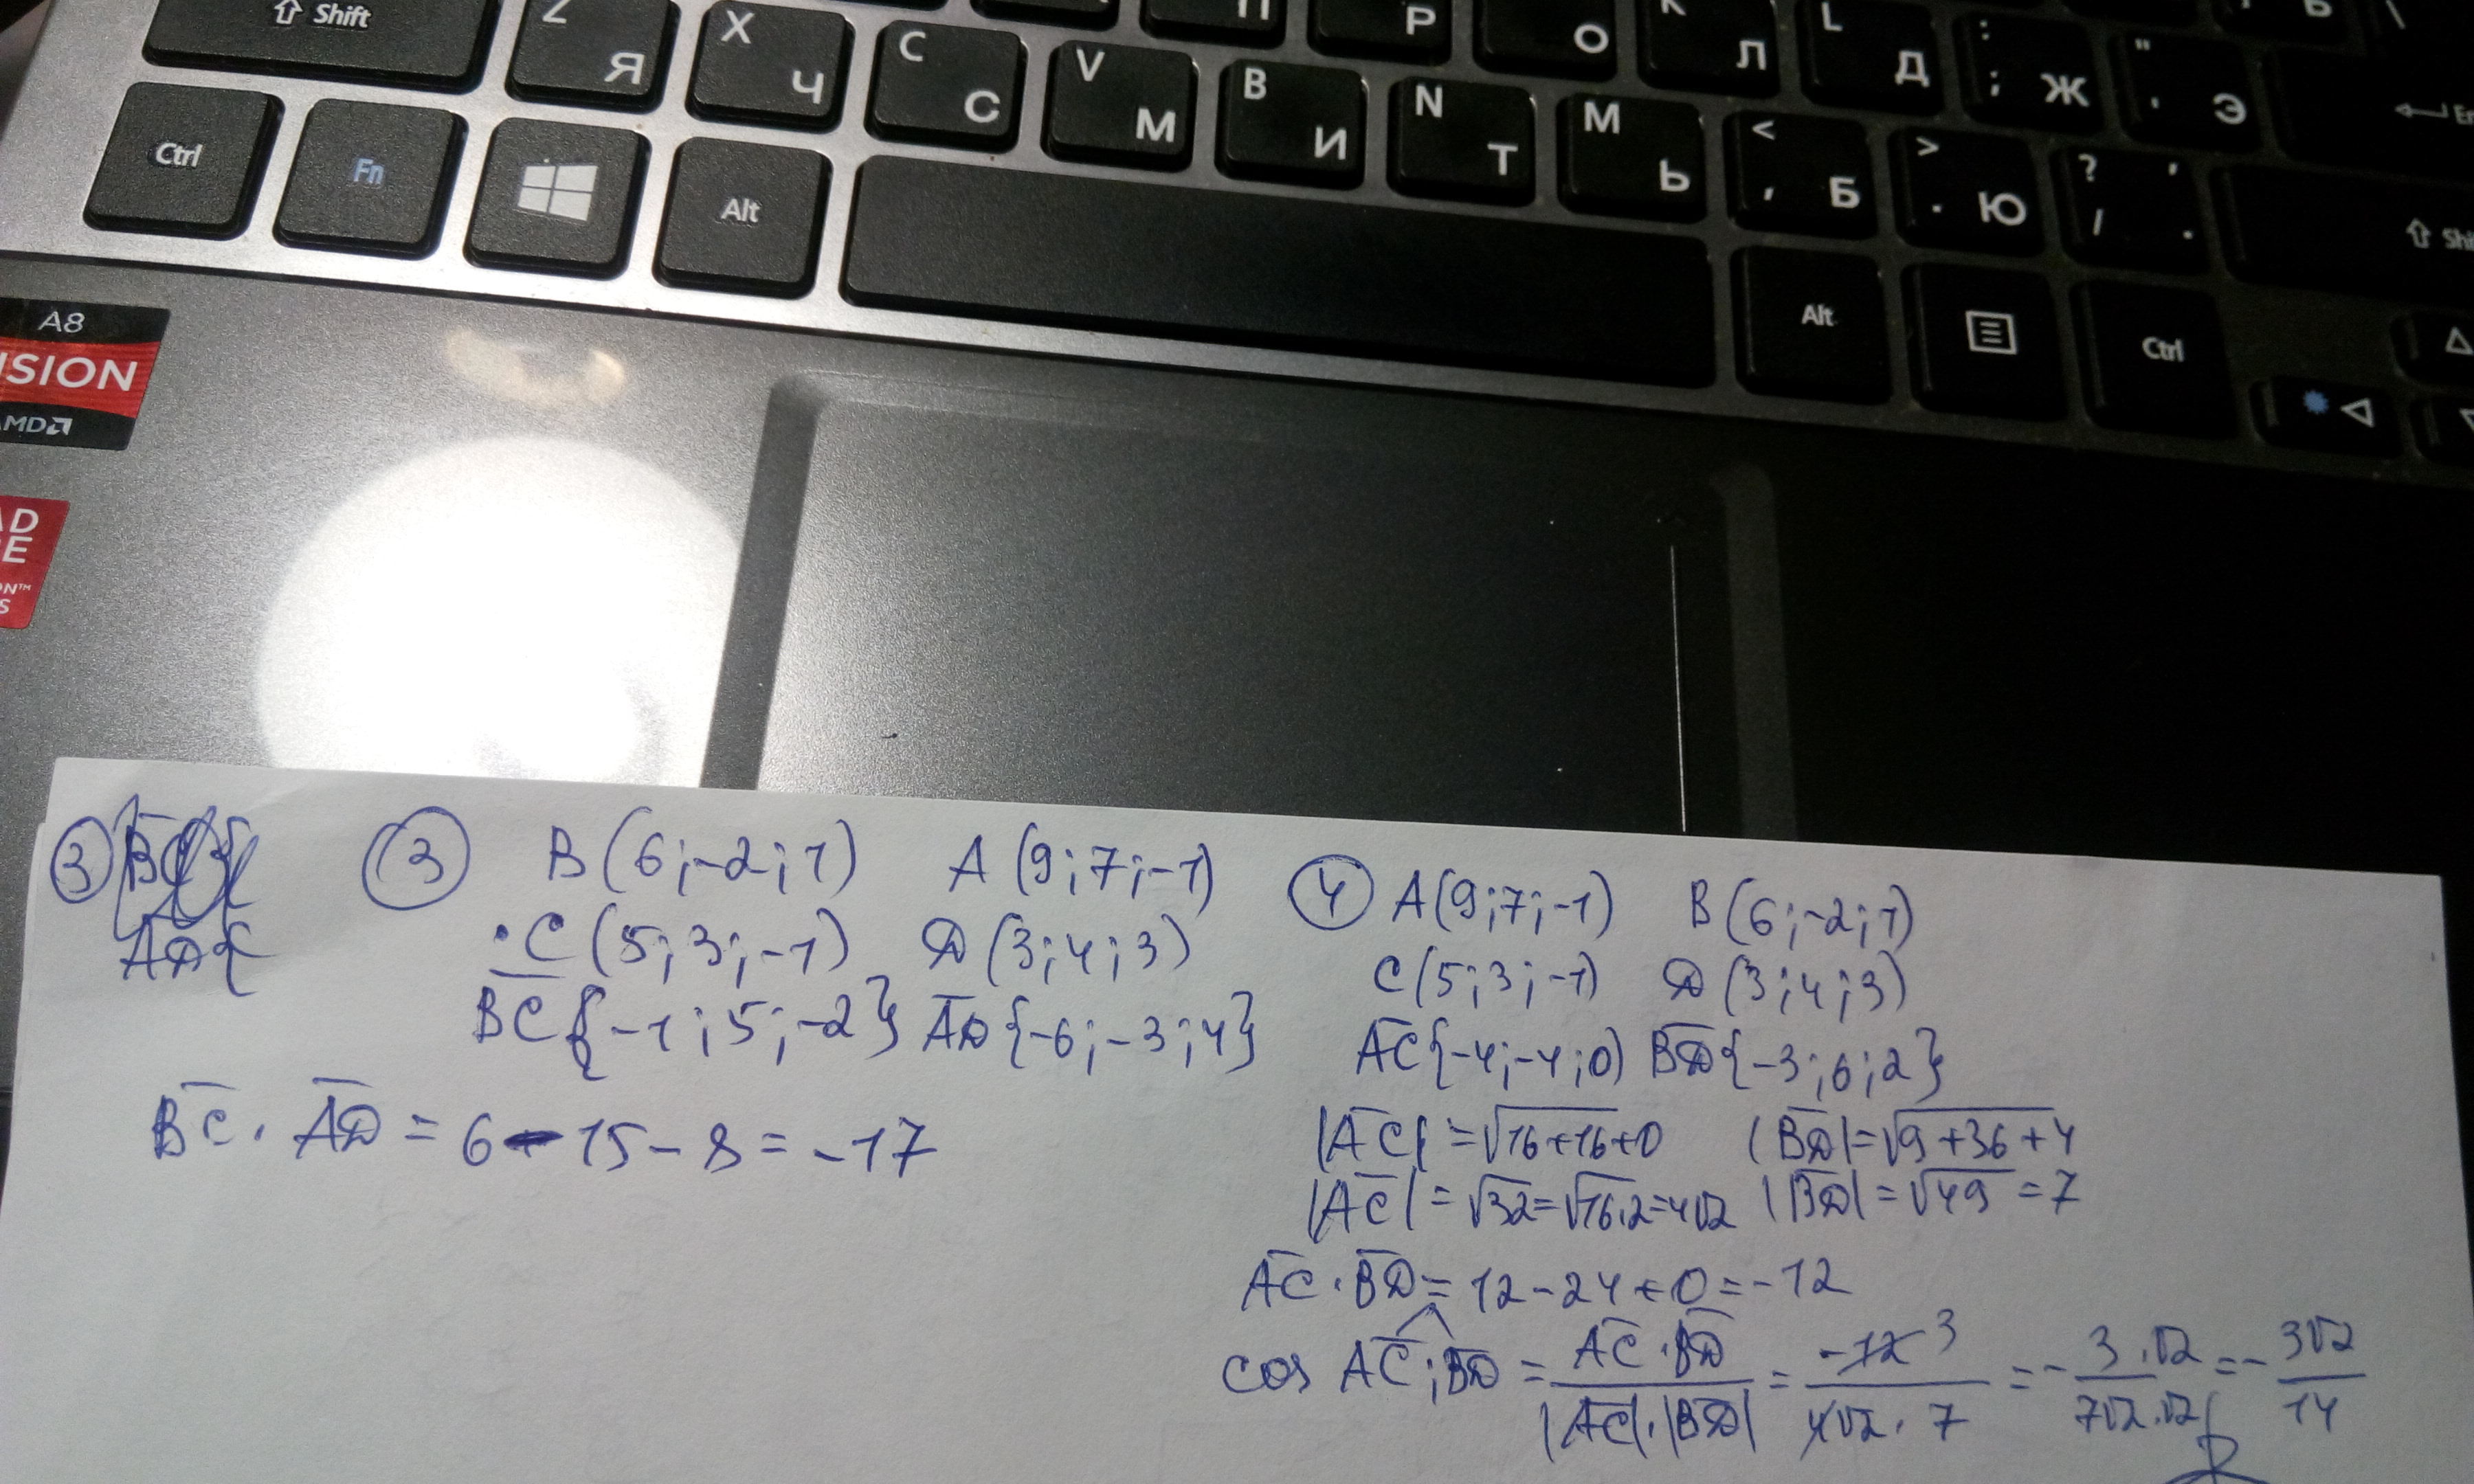 ⇧ Shift
Z Я
X Ч
C С
V М
B И
N Т
M Ь
< , Б
> . Ю
? / , .
П
Р
О
К Л
L Д
: ; Ж
" ' Э
Ъ \
Ctrl
Fn
Alt
Alt
Ctrl
A8
ISION
AMD
AD
E
ON™
S
③
③ B(6;-2;1) A(9;7;-1)
C(5;3;-1) D(3;4;3)
BC{-1;5;-2} AD{-6;-3;4}
BC · AD = 6-15-8=-17
④ A(9;7;-1) B(6;-2;1)
C(5;3;-1) D(3;4;3)
AC{-4;-4;0) BD{-3;6;2}
|AC|=√16+16+0 |BD|=√9+36+4
|AC|=√32=√16·2=4√2 |BD|=√49=7
AC·BD=12-24+0=-12
cos AC;BD = AC·BD / |AC|·|BD| = -12 3 / 4√2·7 = - 3·√2 / 7√2·√2 = - 3√2 / 14